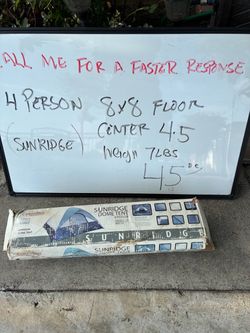 CALL ME FOR A FASTER RESPONSE
4 PERSON 8x8 FLOOR
(SUNRIDGE) CENTER 4.5
WEIGH 7LBS
45.00
SUNRIDGE
DOME TENT
SUNRIDGE